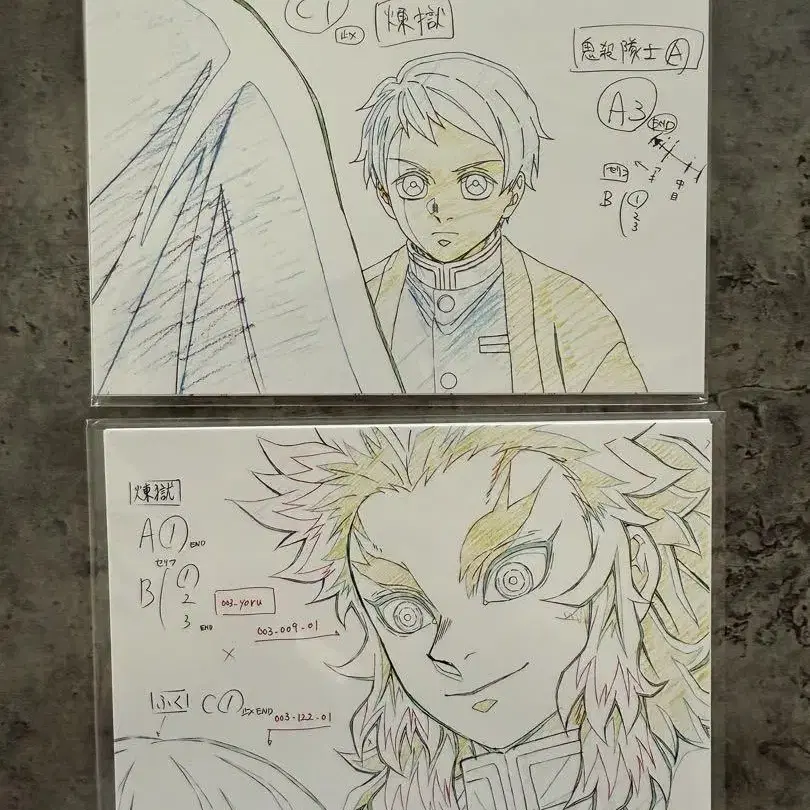 C1
止メ
煉獄
鬼殺隊士 A
A3
END
セリフ
中
目
B 1
2
3
煉獄
A 1 END
セリフ
B 1
2
3 END
003-yoru
003-009-01
×
ふく
C 1 止メ END
003-122-01